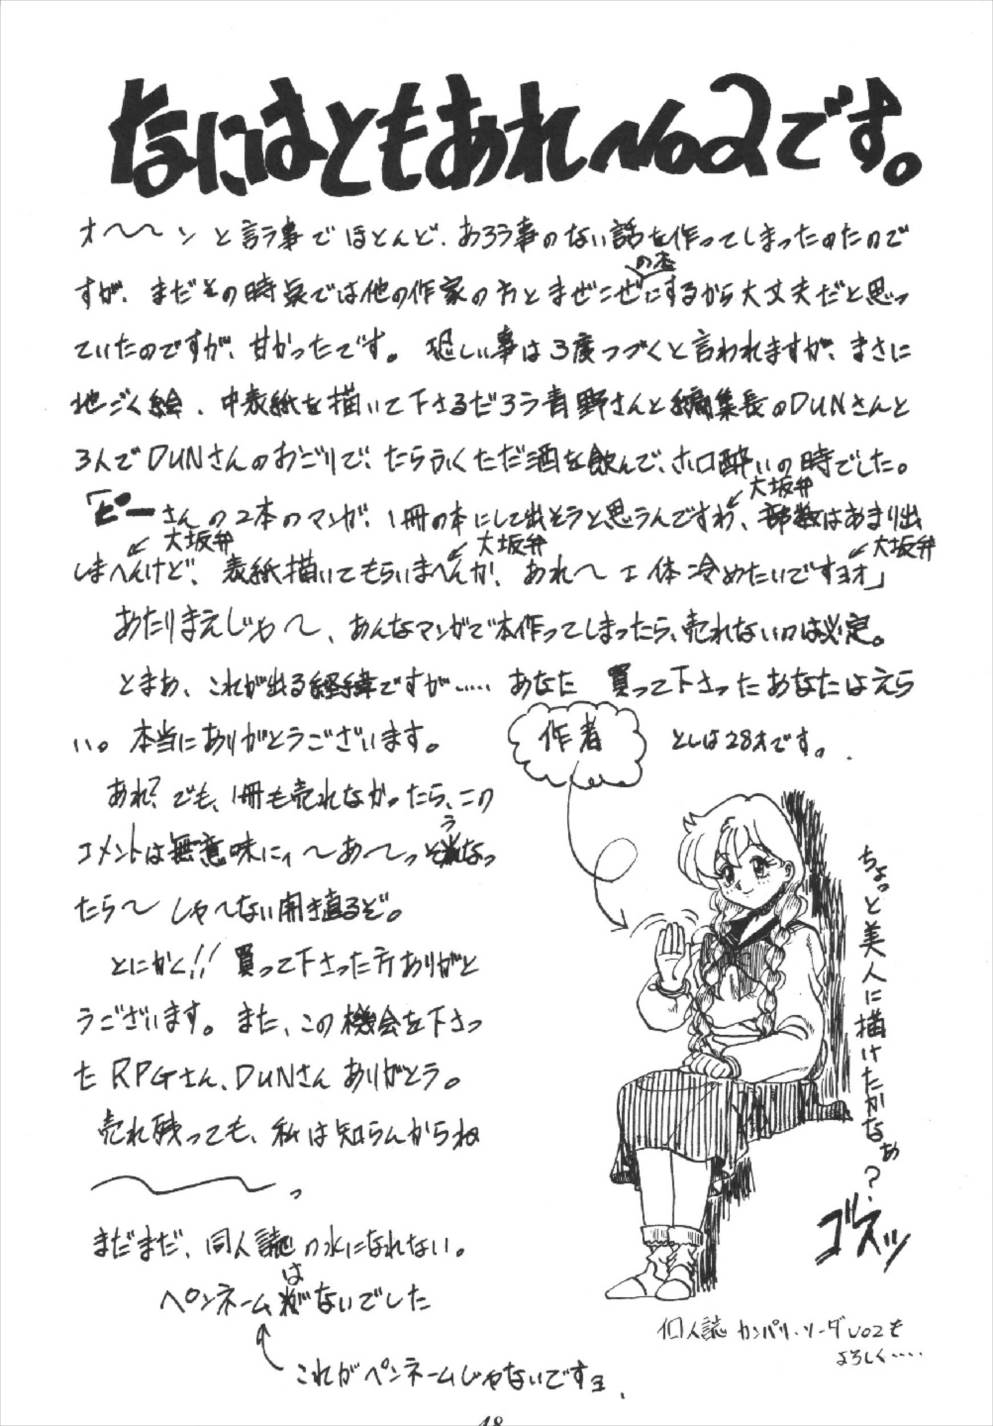 なにはともあれNo2です。
オ〜〜ンと言う事でほとんど、あろう事のない話を作ってしまったのたので
すが、まだその時点では他の作家の方とまぜこぜにするから大丈夫だと思っ
の本
ていたのですが、甘かったです。恐しい事は3度つづくと言われますが、まさに
地ごく絵、中表紙を描いて下さるだろう青野さんと編集長のDUNさんと
3人でDUNさんのおごりで、たらふくただ酒を飲んで、ホロ酔いの時でした。
「ピーさんの2本のマンガ、1冊の本にして出そうと思うんですわ、部数はあまり出
大坂弁
しまへんけど、表紙描いてもらいまへんか、あれ〜エ体冷めたいですヨオ」
大坂弁
大坂弁
大坂弁
あたりまえじゃ〜、あんなマンガで本作ってしまったら、売れないのは必定。
とまあ、これが出る経緯ですが‥‥‥あなた 買って下さったあなたはえら
い。本当にありがとうございます。
あれ?でも、1冊も売れなかったら、この
コメントは無意味にィ〜あ〜っそうなっ
たら〜しゃ〜ない開き直るぞ。
とにかく!!買って下さった方ありがと
うございます。また、この機会を下さっ
たRPGさん、DUNさんありがとう。
売れ残っても、私は知らんからね
〜〜っ
まだまだ、同人誌の水になれない。
ペンネームはないでした
これがペンネームじゃないですヨ、
作者
としは28才です。
ちょっと美人に描けたかなぁ?
ゴルスッ
個人誌 カンパリ・ソーダVO2も
よろしく‥‥
18